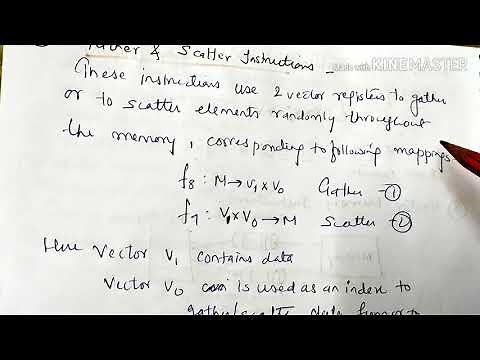 Gather & Scatter Instructions -
Made with KINEMASTER
These instructions use 2 vector registers to gather
or to scatter elements randomly throughout
the memory, corresponding to following mappings
f8 : M → V1 x V0 Gather - ①
f7 : V1 x V0 → M Scatter - ②
Here Vector V1 contains data
Vector V0 is used as an index to
gather/scatter data from or to